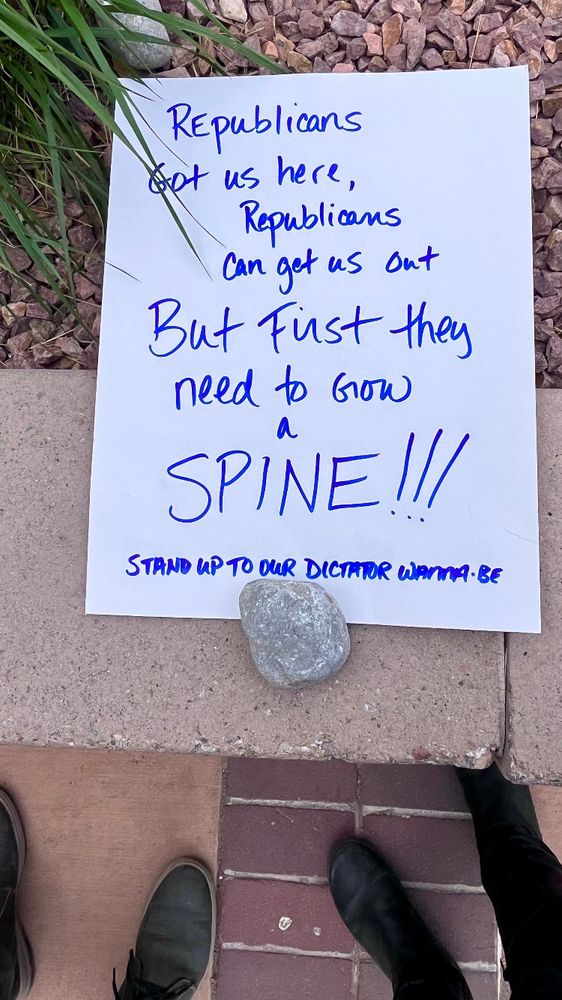 REpublicans
Got us here,
Republicans
can get us out
But First they
need to Grow
a
SPINE!!!
STAND UP TO OUR DICTATOR WANNA-BE